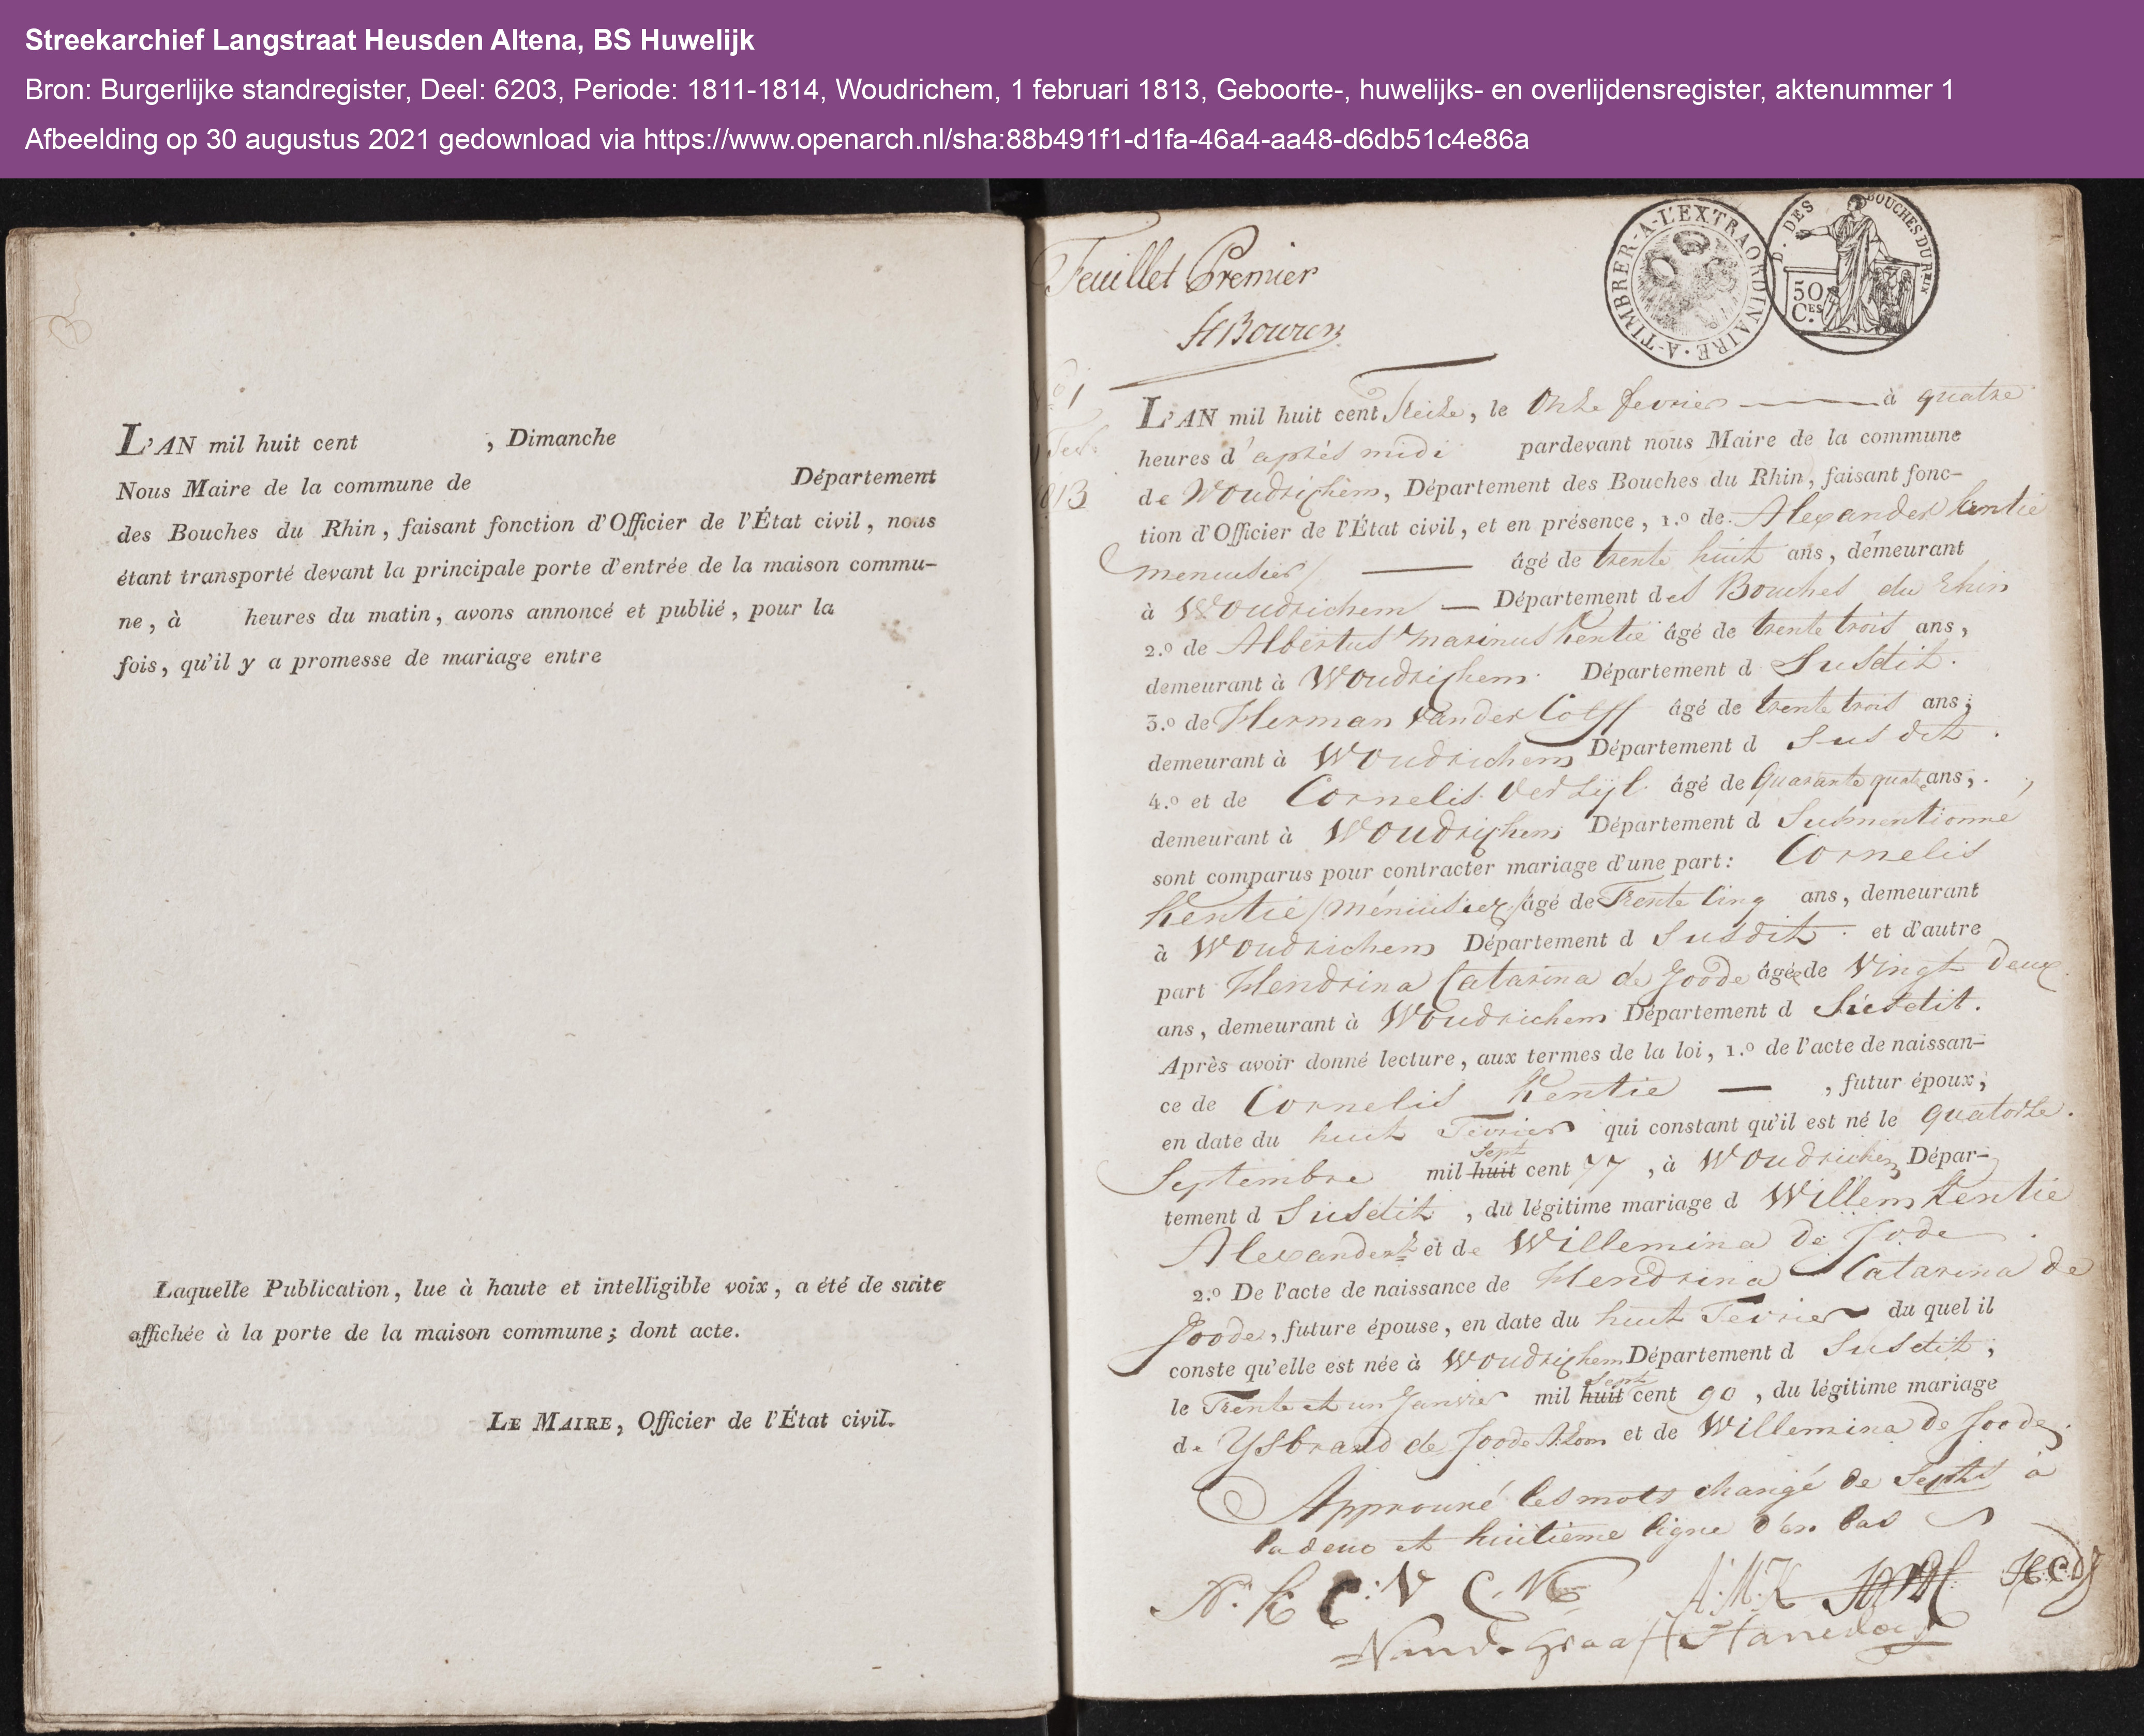 Streekarchief Langstraat Heusden Altena, BS Huwelijk
Bron: Burgerlijke standregister, Deel: 6203, Periode: 1811-1814, Woudrichem, 1 februari 1813, Geboorte-, huwelijks- en overlijdensregister, aktenummer 1
Afbeelding op 30 augustus 2021 gedownload via https://www.openarch.nl/sha:88b491f1-d1fa-46a4-aa48-d6db51c4e86a
L'AN mil huit cent , Dimanche
Nous Maire de la commune de Département
des Bouches du Rhin, faisant fonction d'Officier de l'État civil, nous
étant transporté devant la principale porte d'entrée de la maison commu-
ne, à heures du matin, avons annoncé et publié, pour la
fois, qu'il y a promesse de mariage entre
Laquelle Publication, lue à haute et intelligible voix, a été de suite
affichée à la porte de la maison commune; dont acte.
LE MAIRE, Officier de l'État civil.
Feuillet Premier
A-TIMBRER-A-L'EXTRAORDINAIRE
D. DES BOUCHES DU RIN
50 CES
1
1813
L'AN mil huit cent Treize, le Onze fevrier à quatre
heures d'aprés midi pardevant nous Maire de la commune
de Woudrichem, Département des Bouches du Rhin, faisant fonc-
tion d'Officier de l'État civil, et en présence, 1.º de Alexander Kentie
menuisier âgé de trente huit ans, demeurant
à Woudrichem Département des Bouches du Rhin
2.º de Albertus Marinus Kentie âgé de trente trois ans,
demeurant à Woudrichem Département d Susdit.
3.º de Herman van der Colff âgé de trente trois ans;
demeurant à Woudrichem Département d Susdit.
4.º et de Cornelis Verzijl âgé de Quarante quatre ans;
demeurant à Woudrichem Département d Susmentionne
sont comparus pour contracter mariage d'une part: Cornelis
Kentie / méniusier / âgé de Trente Cinq ans, demeurant
à Woudrichem Département d Susdit. et d'autre
part Hendrina Catarina de Joode âgée de Vingt Deux
ans, demeurant à Woudrichem Département d Susdit.
Après avoir donné lecture, aux termes de la loi, 1.º de l'acte de naissan-
ce de Cornelis Kentie , futur époux,
en date du huit Fevrier qui constant qu'il est né le quatorze.
Septembre mil huit Sept cent 77, à Woudrichem Dépar-
tement d Susdit, du légitime mariage d Willem Kentie
Alexanderz et de Willemina De Jode
2.º De l'acte de naissance de Hendrina Catarina de
Joode, future épouse, en date du huit Fevrier du quel il
conste qu'elle est née à Woudrichem Département d Susdit;
le Trente et un Janvier mil huit Sept cent 90, du légitime mariage
de Ysbrand de Joode et de Willemina de Joode.
Approuvé les mots changé de Septs a
la deux et huitième ligne d'en bas
C:V A:M:K HCDJ